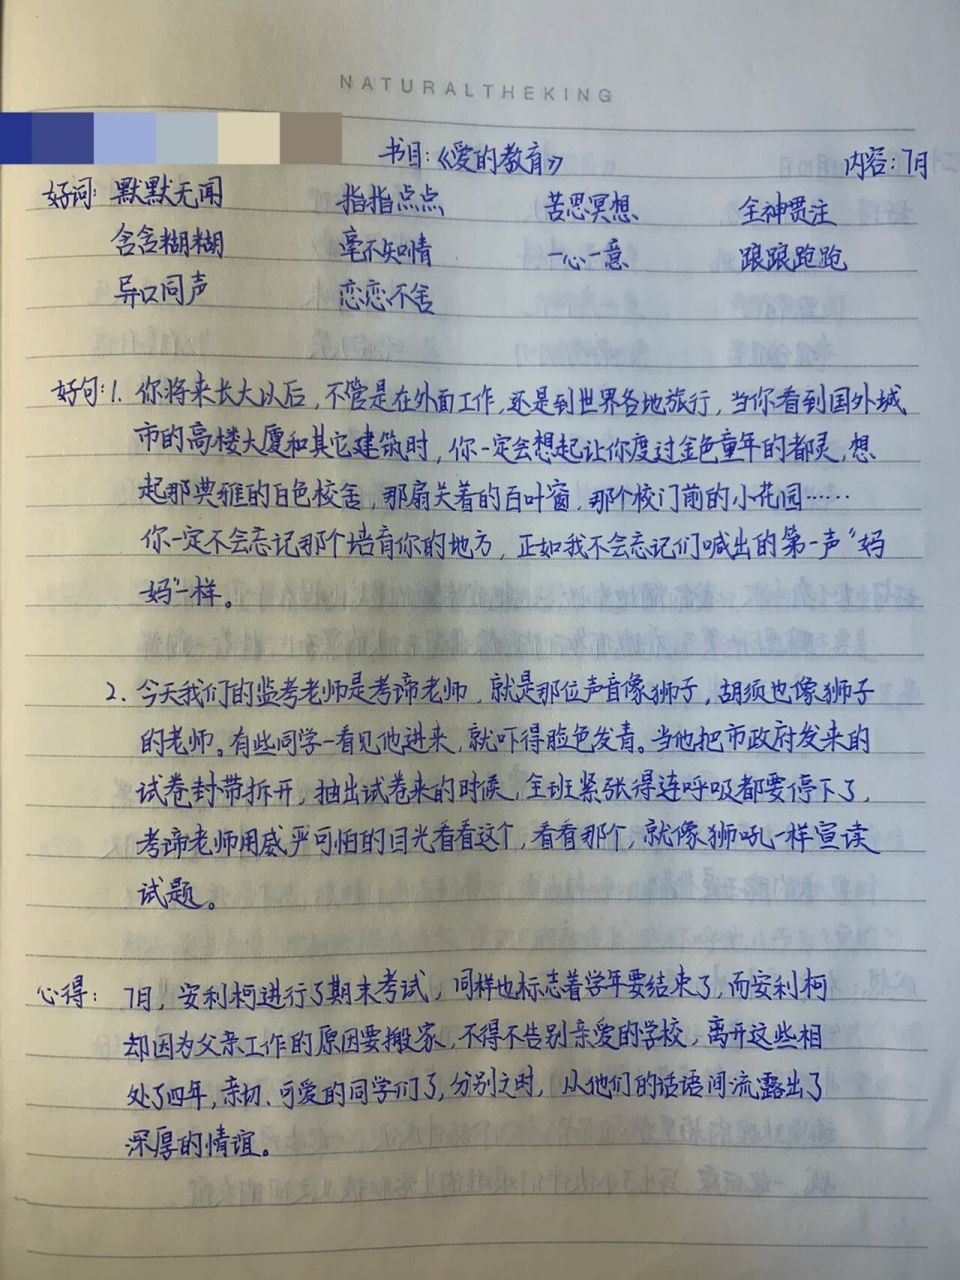 NATURALTHEKING
书目:《爱的教育》 内容:7月
好词: 默默无闻 指指点点 苦思冥想 全神贯注
含含糊糊 毫不知情 一心一意 踉踉跑跑
异口同声 恋恋不舍
好句:1. 你将来长大以后,不管是在外面工作,还是到世界各地旅行,当你看到国外城
市的高楼大厦和其它建筑时,你一定会想起让你度过金色童年的都灵,想
起那典雅的白色校舍,那扇关着的百叶窗,那个校门前的小花园……
你一定不会忘记那个培育你的地方,正如我不会忘记们喊出的第一声“妈
妈”一样。
2. 今天我们的监考老师是考谛老师,就是那位声音像狮子,胡须也像狮子
的老师。有些同学一看见他进来,就吓得脸色发青。当他把市政府发来的
试卷封带拆开,抽出试卷来的时候,全班紧张得连呼吸都要停下了,
考谛老师用威严可怕的目光看看这个,看看那个,就像狮吼一样宣读
试题。
心得: 7月,安利柯进行了期末考试,同样也标志着学年要结束了,而安利柯
却因为父亲工作的原因要搬家,不得不告别亲爱的学校,离开这些相
处了四年,亲切、可爱的同学们了,分别之时,从他们的话语间流露出了
深厚的情谊。